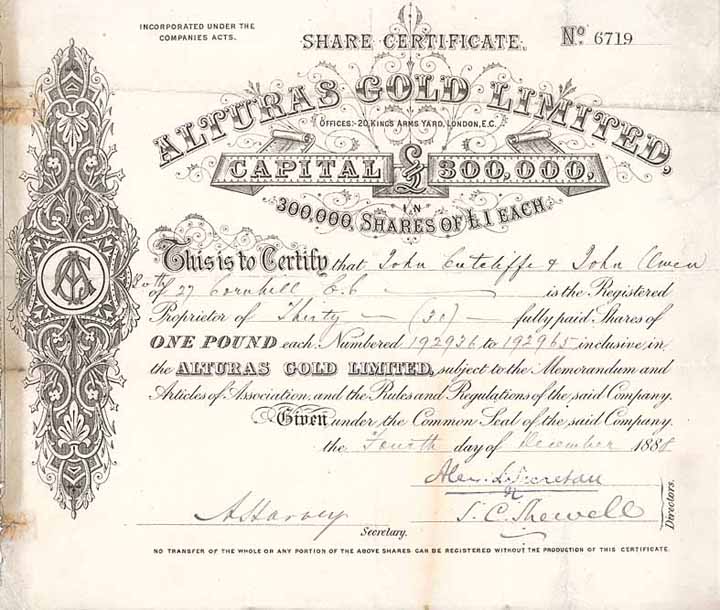 INCORPORATED UNDER THE
COMPANIES ACTS.
SHARE CERTIFICATE.
No. 6719
ALTURAS GOLD LIMITED,
OFFICES:- 20, KING'S ARMS YARD, LONDON, E.C.
CAPITAL £ 300,000,
IN
300,000 SHARES OF £1 EACH.
This is to Certify that John Cutcliffe & John Owen
Both
of 27 Cornhill E.C. is the Registered
Proprietor of Thirty (30) fully paid Shares of
ONE POUND each, Numbered 192936 to 192965 inclusive, in
the ALTURAS GOLD LIMITED, subject to the Memorandum and
Articles of Association, and the Rules and Regulations of the said Company.
Given under the Common Seal of the said Company.
the Fourth day of December 1888
A Harvey
T. C. Shewell
Directors.
Secretary.
NO TRANSFER OF THE WHOLE OR ANY PORTION OF THE ABOVE SHARES CAN BE REGISTERED WITHOUT THE PRODUCTION OF THIS CERTIFICATE.